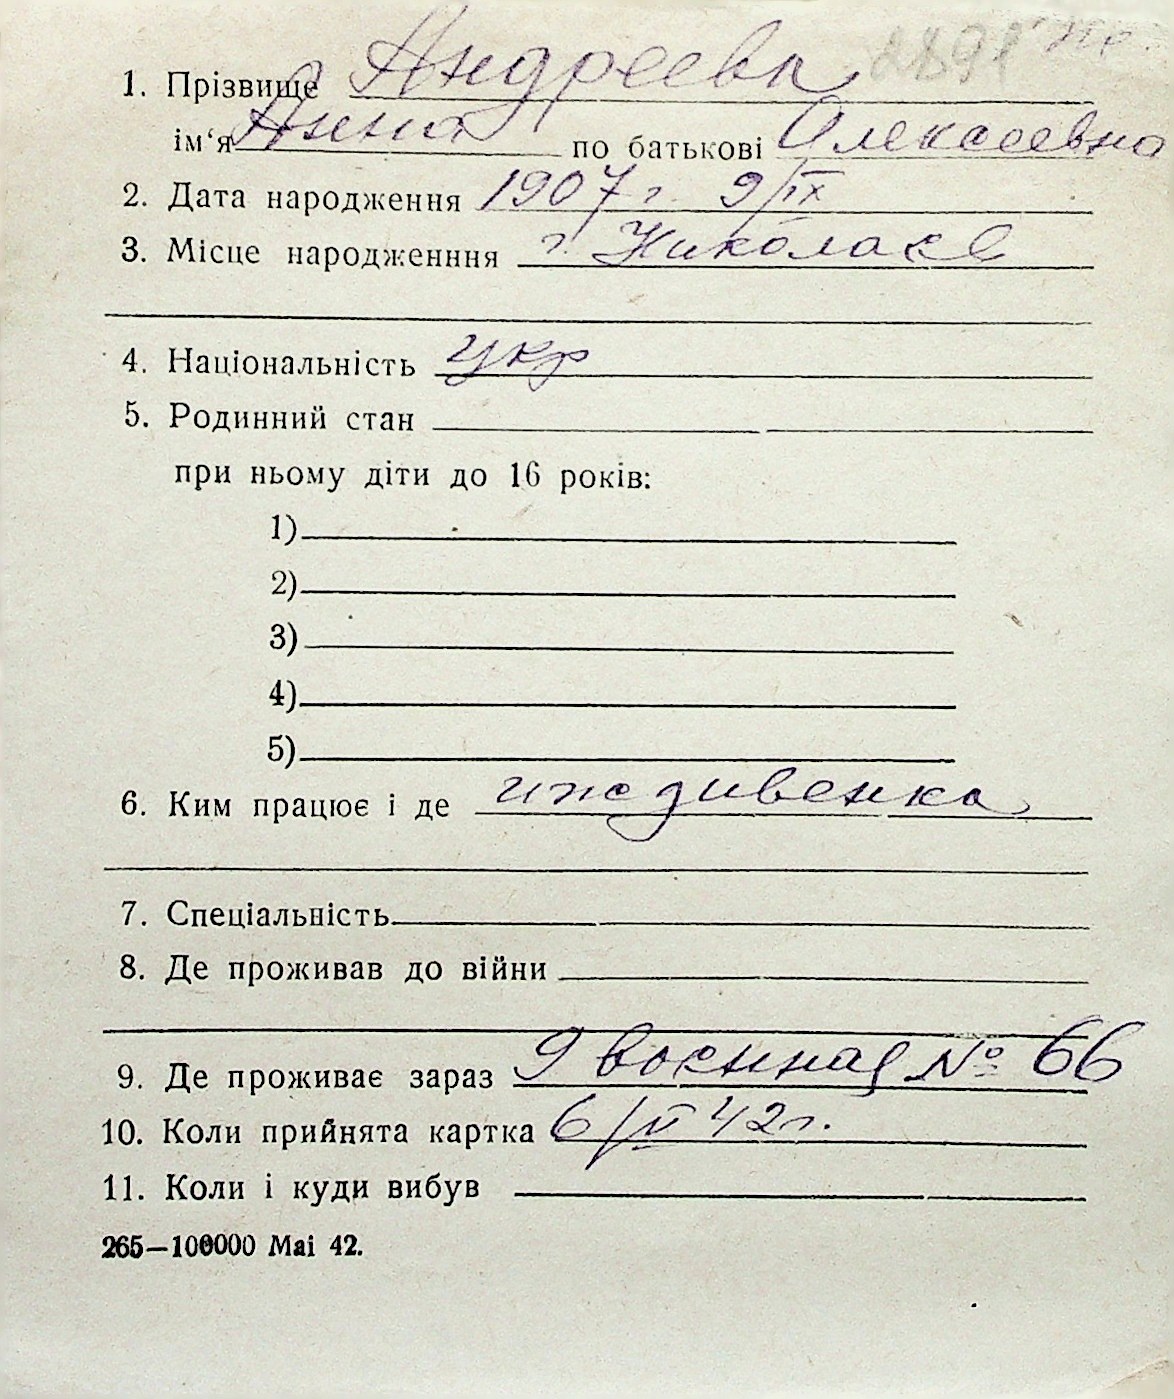 2891
1. Прізвище Андреева
ім‘я Анна по батькові Олексеевна
2. Дата народження 1907 г. 9/IX
3. Місце народженння г. Николаев
4. Національність укр
5. Родинний стан
при ньому діти до 16 років:
1)
2)
3)
4)
5)
6. Ким працює і де иждивенка
7. Спеціальність
8. Де проживав до війни
9. Де проживає зараз 9 военная № 66
10. Коли прийнята картка 6/VI 42 г.
11. Коли і куди вибув
265—100000 Mai 42.